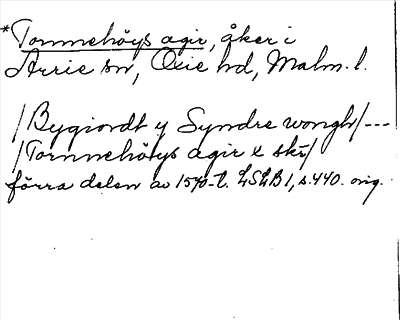 *Tornnehöys agir, åker i
Arrie sn, Oxie hd, Malm. l.
/Bygiordt y Syndre wongh/---
/Tornnehöys agir x skr/
förra delen av 1570-t. LSLB 1, s. 440. orig.